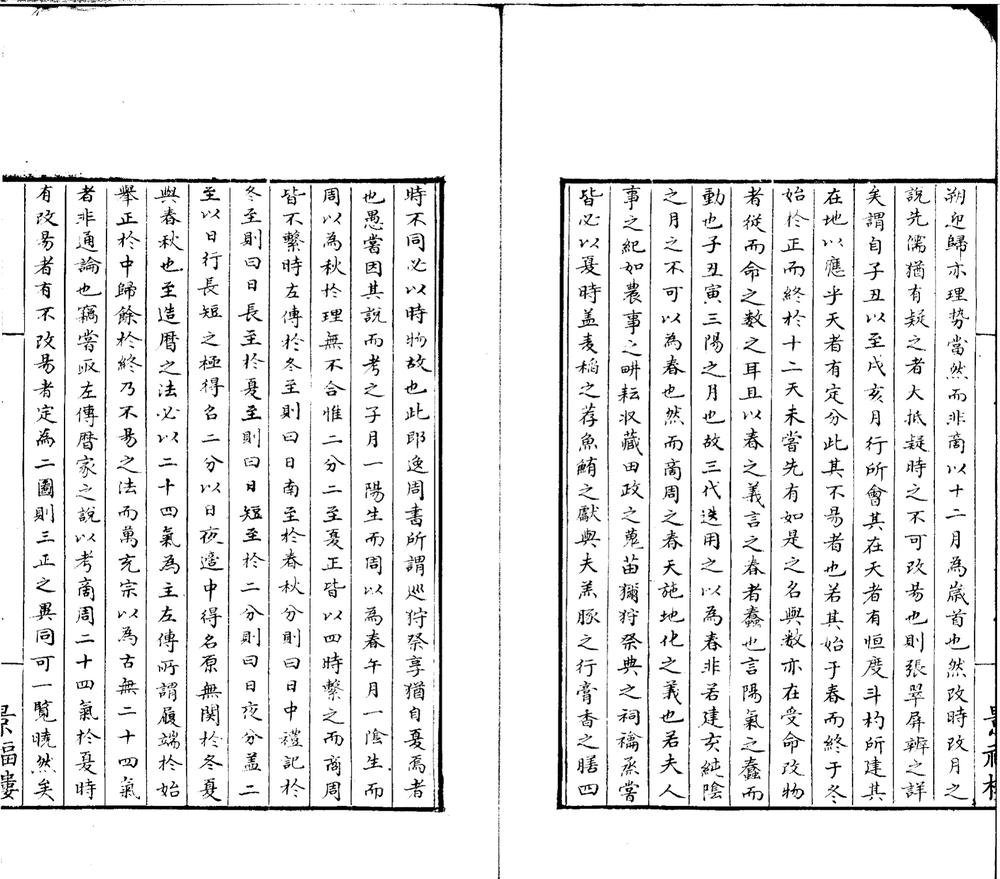 朔廵歸亦理勢當然而非商以十二月為歲首也然改時改月之
說先儒猶有疑之者大抵疑時之不可改昜也則張翠屏辨之詳
矣謂自子丑以至戌亥月行所會其在天者有恒度斗杓所建其
在地以應乎天者有定分此其不昜者也若其始于春而終于冬
始於正而終於十二天未嘗先有如是之名與數亦在受命改物
者從而命之數之耳且以春之義言之春者蠢也言陽氣之蠢而
動也子丑寅三陽之月也故三代迭用之以為春非若建亥純陰
之月之不可以為春也然而商周之春天施地化之義也若夫人
事之紀如農事之畊耘収藏田政之蒐苗獮狩祭典之祠禴烝嘗
皆必以夏時盖麦稻之荐魚鮪之獻與夫羔豚之行膏香之膳四
時不同必以時物故也此即逸周書所謂巡狩祭享猶自夏焉者
也愚嘗因其說而考之子月一陽生而周以為春午月一陰生而
周以為秋於理無不合惟二分二至夏正皆以四時繫之而商周
皆不繫時左傳於冬至則曰日南至於春秋分則曰日中禮記於
冬至則曰日長至於夏至則曰日短至於二分則曰日夜分盖二
至以日行長短之極得名二分以日夜適中得名原無関於冬夏
與春秋也至造曆之法必以二十四氣為主左傳所謂履端於始
舉正於中歸餘於終乃不昜之法而萬充宗以為古無二十四氣
者非通論也竊嘗取左傳曆家之說以考商周二十四氣於夏時
有改昜者有不改昜者定為二圖則三正之異同可一覧曉然矣
景福樓